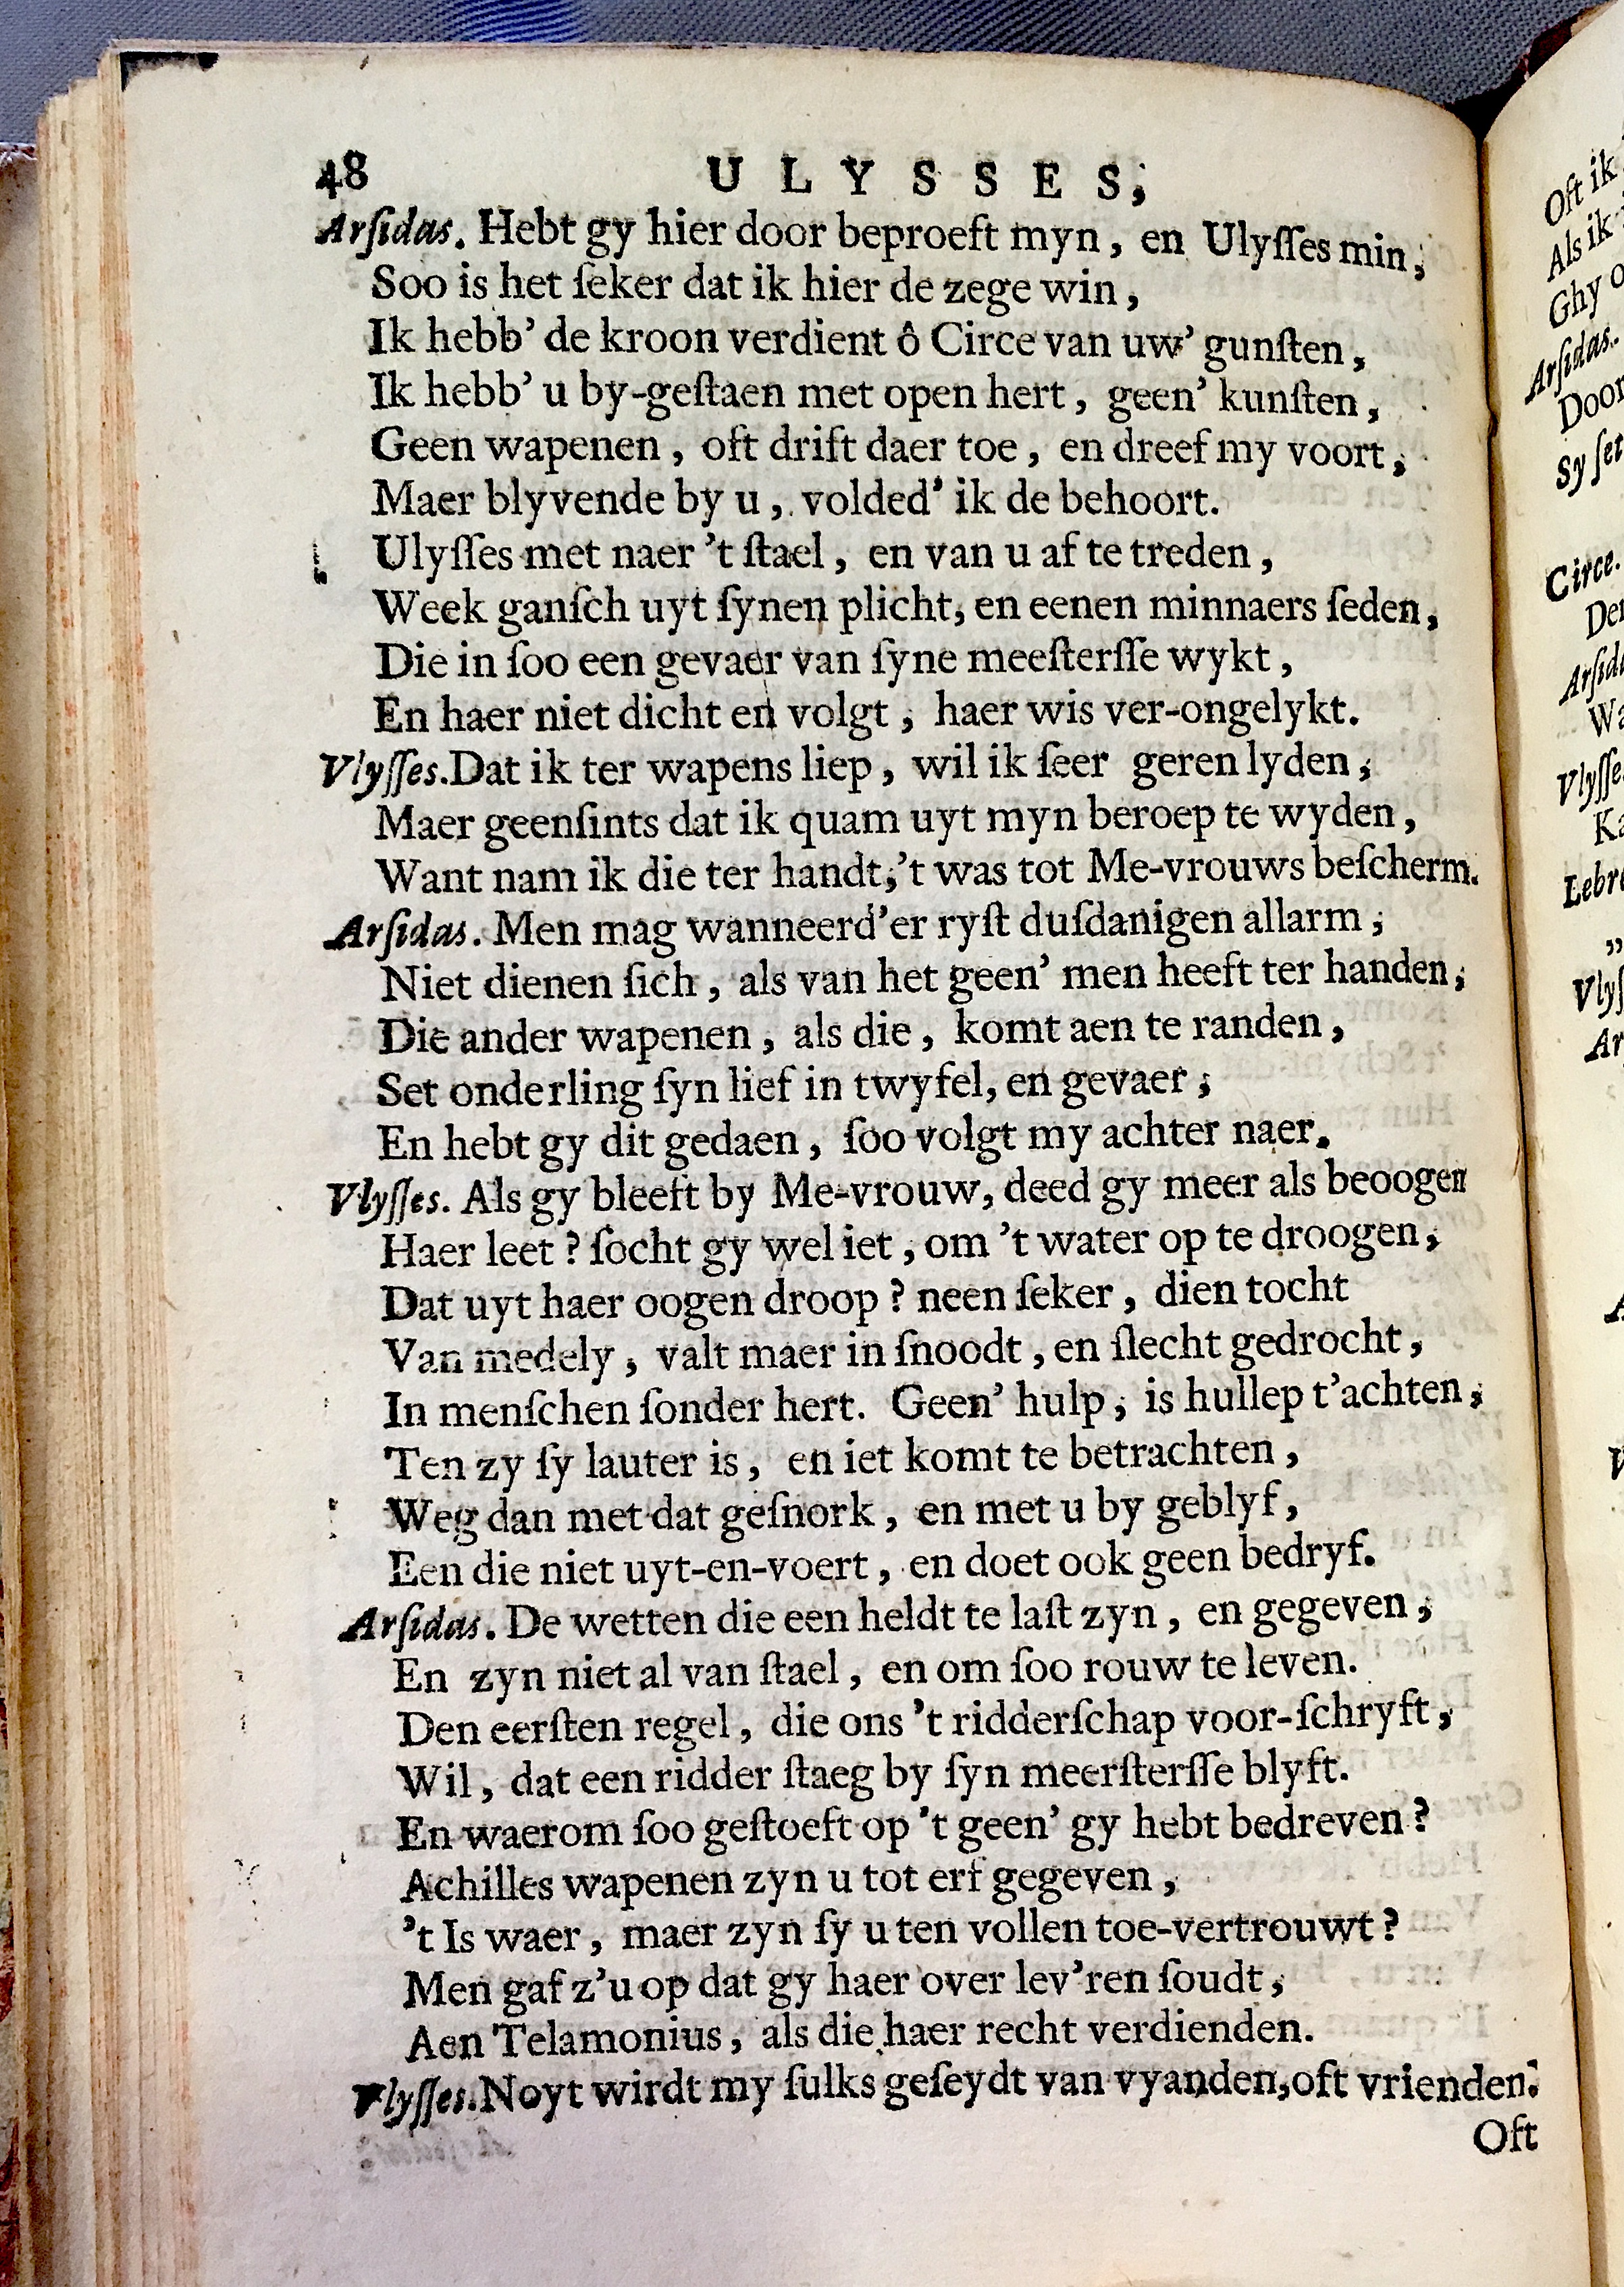 48 ULYSSES,
Arſidas. Hebt gy hier door beproeft myn, en Ulyſſes min,
Soo is het ſeker dat ik hier de zege win,
Ik hebb' de kroon verdient ô Circe van uw' gunſten,
Ik hebb' u by-geſtaen met open hert, geen' kunſten,
Geen wapenen, oft drift daer toe, en dreef my voort,
Maer blyvende by u, volded' ik de behoort.
Ulyſſes met naer 't ſtael, en van u af te treden,
Week ganſch uyt ſynen plicht, en eenen minnaers ſeden,
Die in ſoo een gevaer van ſyne meeſterſſe wykt,
En haer niet dicht en volgt, haer wis ver-ongelykt.
Vlyſſes. Dat ik ter wapens liep, wil ik ſeer geren lyden,
Maer geenſints dat ik quam uyt myn beroep te wyden,
Want nam ik die ter handt,'t was tot Me-vrouws beſcherm.
Arſidas. Men mag wanneerd'er ryſt duſdanigen allarm,
Niet dienen ſich, als van het geen' men heeft ter handen,
Die ander wapenen, als die, komt aen te randen,
Set onderling ſyn lief in twyfel, en gevaer;
En hebt gy dit gedaen, ſoo volgt my achter naer.
Vlyſſes. Als gy bleeft by Me-vrouw, deed gy meer als beoogen
Haer leet? ſocht gy wel iet, om 't water op te droogen,
Dat uyt haer oogen droop? neen ſeker, dien tocht
Van medely, valt maer in ſnoodt, en ſlecht gedrocht,
In menſchen ſonder hert. Geen' hulp, is hullep t'achten,
Ten zy ſy lauter is, en iet komt te betrachten,
Weg dan met dat geſnork, en met u by geblyf,
Een die niet uyt-en-voert, en doet ook geen bedryf.
Arſidas. De wetten die een heldt te laſt zyn, en gegeven,
En zyn niet al van ſtael, en om ſoo rouw te leven.
Den eerſten regel, die ons 't ridderſchap voor-ſchryft,
Wil, dat een ridder ſtaeg by ſyn meerſterſſe blyft.
En waerom ſoo geſtoeft op 't geen' gy hebt bedreven?
Achilles wapenen zyn u tot erf gegeven,
't Is waer, maer zyn ſy u ten vollen toe-vertrouwt?
Men gaf z'u op dat gy haer over lev'ren ſoudt,
Aen Telamonius, als die haer recht verdienden.
Vlyſſes. Noyt wirdt my ſulks geſeydt van vyanden, oft vrienden.
Oft
Oft ik
Als ik
Ghy
Arſidas.
Door
Sy ſet
Circe.